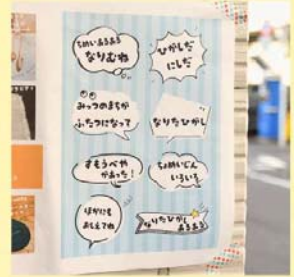 ちめいあるある
なりむね
ひがしだ
にしだ
みっつのまちが
ふたつになって
なりたひがし
すもうべや
があった！
ちょめいじん
いろいろ
ほかにも
おしえてね
なりたひがし
あるある